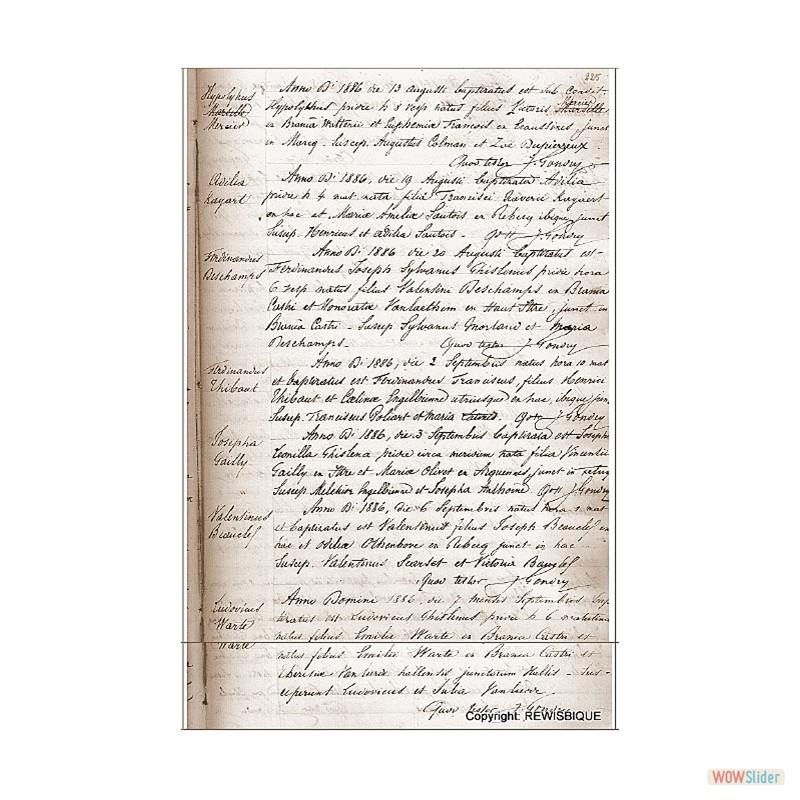 225
Hypolythus
Mercier
Anno Dⁱ 1886 die 13 augusti baptizatus est sub condit.
Hypolythus pridie h 8 vesp natus filius Liutoris Mercier
en Brania Wutterii et Euphemia Francois en Ecaussines, junct
in Marcq. Suscep. Augustus Colman et Zoé Dupierreux
Quod testor J. Gondry
Adilia
Kayart
Anno Dⁱ 1886, die 19 Augusti baptizata Adilia
pridie h 4 mat nata filia Francisci Xaverii Kayaert
en hac et Maria Amelia Sautois en Rebecq ibique junct
Suscep. Henricus et adilia Sautois. qott J. Gondry
Ferdinandus
Deschamps
Anno Dⁱ 1886 die 20 Augusti baptizatus est
Ferdinandus Joseph Sylvanus Ghislinus pridie hora
6 vesp natus filius Valentini Deschamps en Brania
Castri et Honorata Vanlaethem en Haut Ittre, junct. in
Brania Castri. Suscep Sylvanus Morland et Maria
Deschamps. Quod testor J. Gondry
Ferdinandus
Thibaut
Anno Dⁱ 1886, die 2 Septembris natus hora 10 mat
et baptizatus est Ferdinandus Franciscus, filius Henrici
Thibaut et Caelina Engelbienne utriusque en hac, ibique junc
Suscep. Franciscus Poliart et maria qott J. Gondry
Josepha
Gailly
Anno Dⁱ 1886, die 3 Septembris baptizata est Josepha
Leonilla Ghislena, pridie circa meridiem nata filia Vincentii
Gailly en Ittre et Maria Olivet en Arquennes, junct in
Suscep Melchior Engelbienne et Josepha Anthoine qott J. Gondry
Valentinus
Beauclef
Anno Dⁱ 1886, die 6 Septembris natus hora 1 mat
et baptizatus est Valentinus filius Joseph Beauclef en
hac et Odilia Olsenbove en Rebecq junct in hac
Suscep. Valentinus Scarset et Victoria Bauclef
Quod testor J. Gondry
Ludovicus
Warte
Anno Domini 1886, die 7 mensis Septembris bap
tizatus est Ludovicus Ghislinus pridie h 6
natus filius Emilii Warte en Brania Castri et
Warte
natus filius Emilii Warte en Brania Castri et
Theresiae Vanlierde hallensis junctorum Hallis. Sus-
ceperunt Ludovicus et Julia Vanlierde.
Quod testor J. Gondry
Copyright: REWISBIQUE
WOWSlider